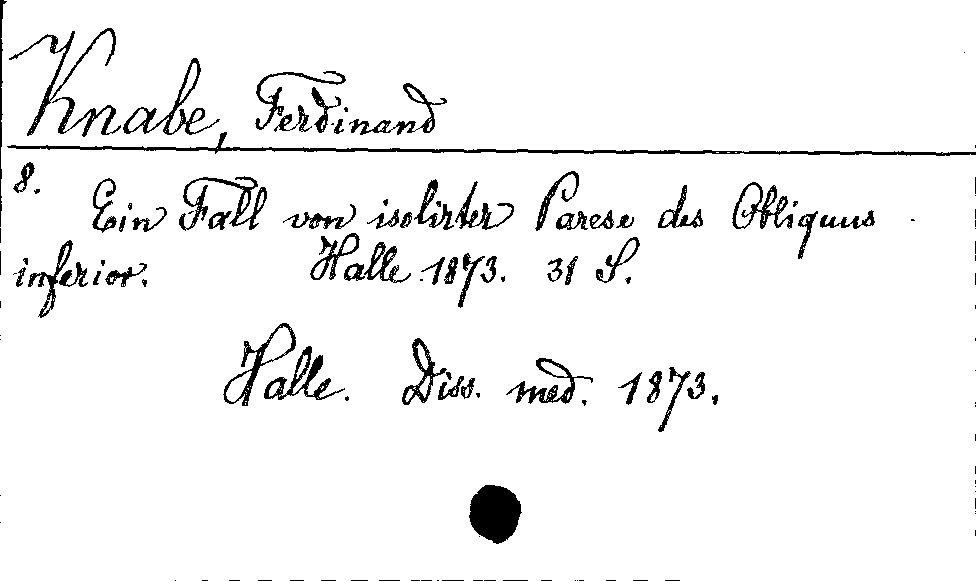 Knabe, Ferdinand
8. Ein Fall von isolirter Parese des Obliquus
inferior. Halle 1873. 31 S.
Halle. Diss. med. 1873.